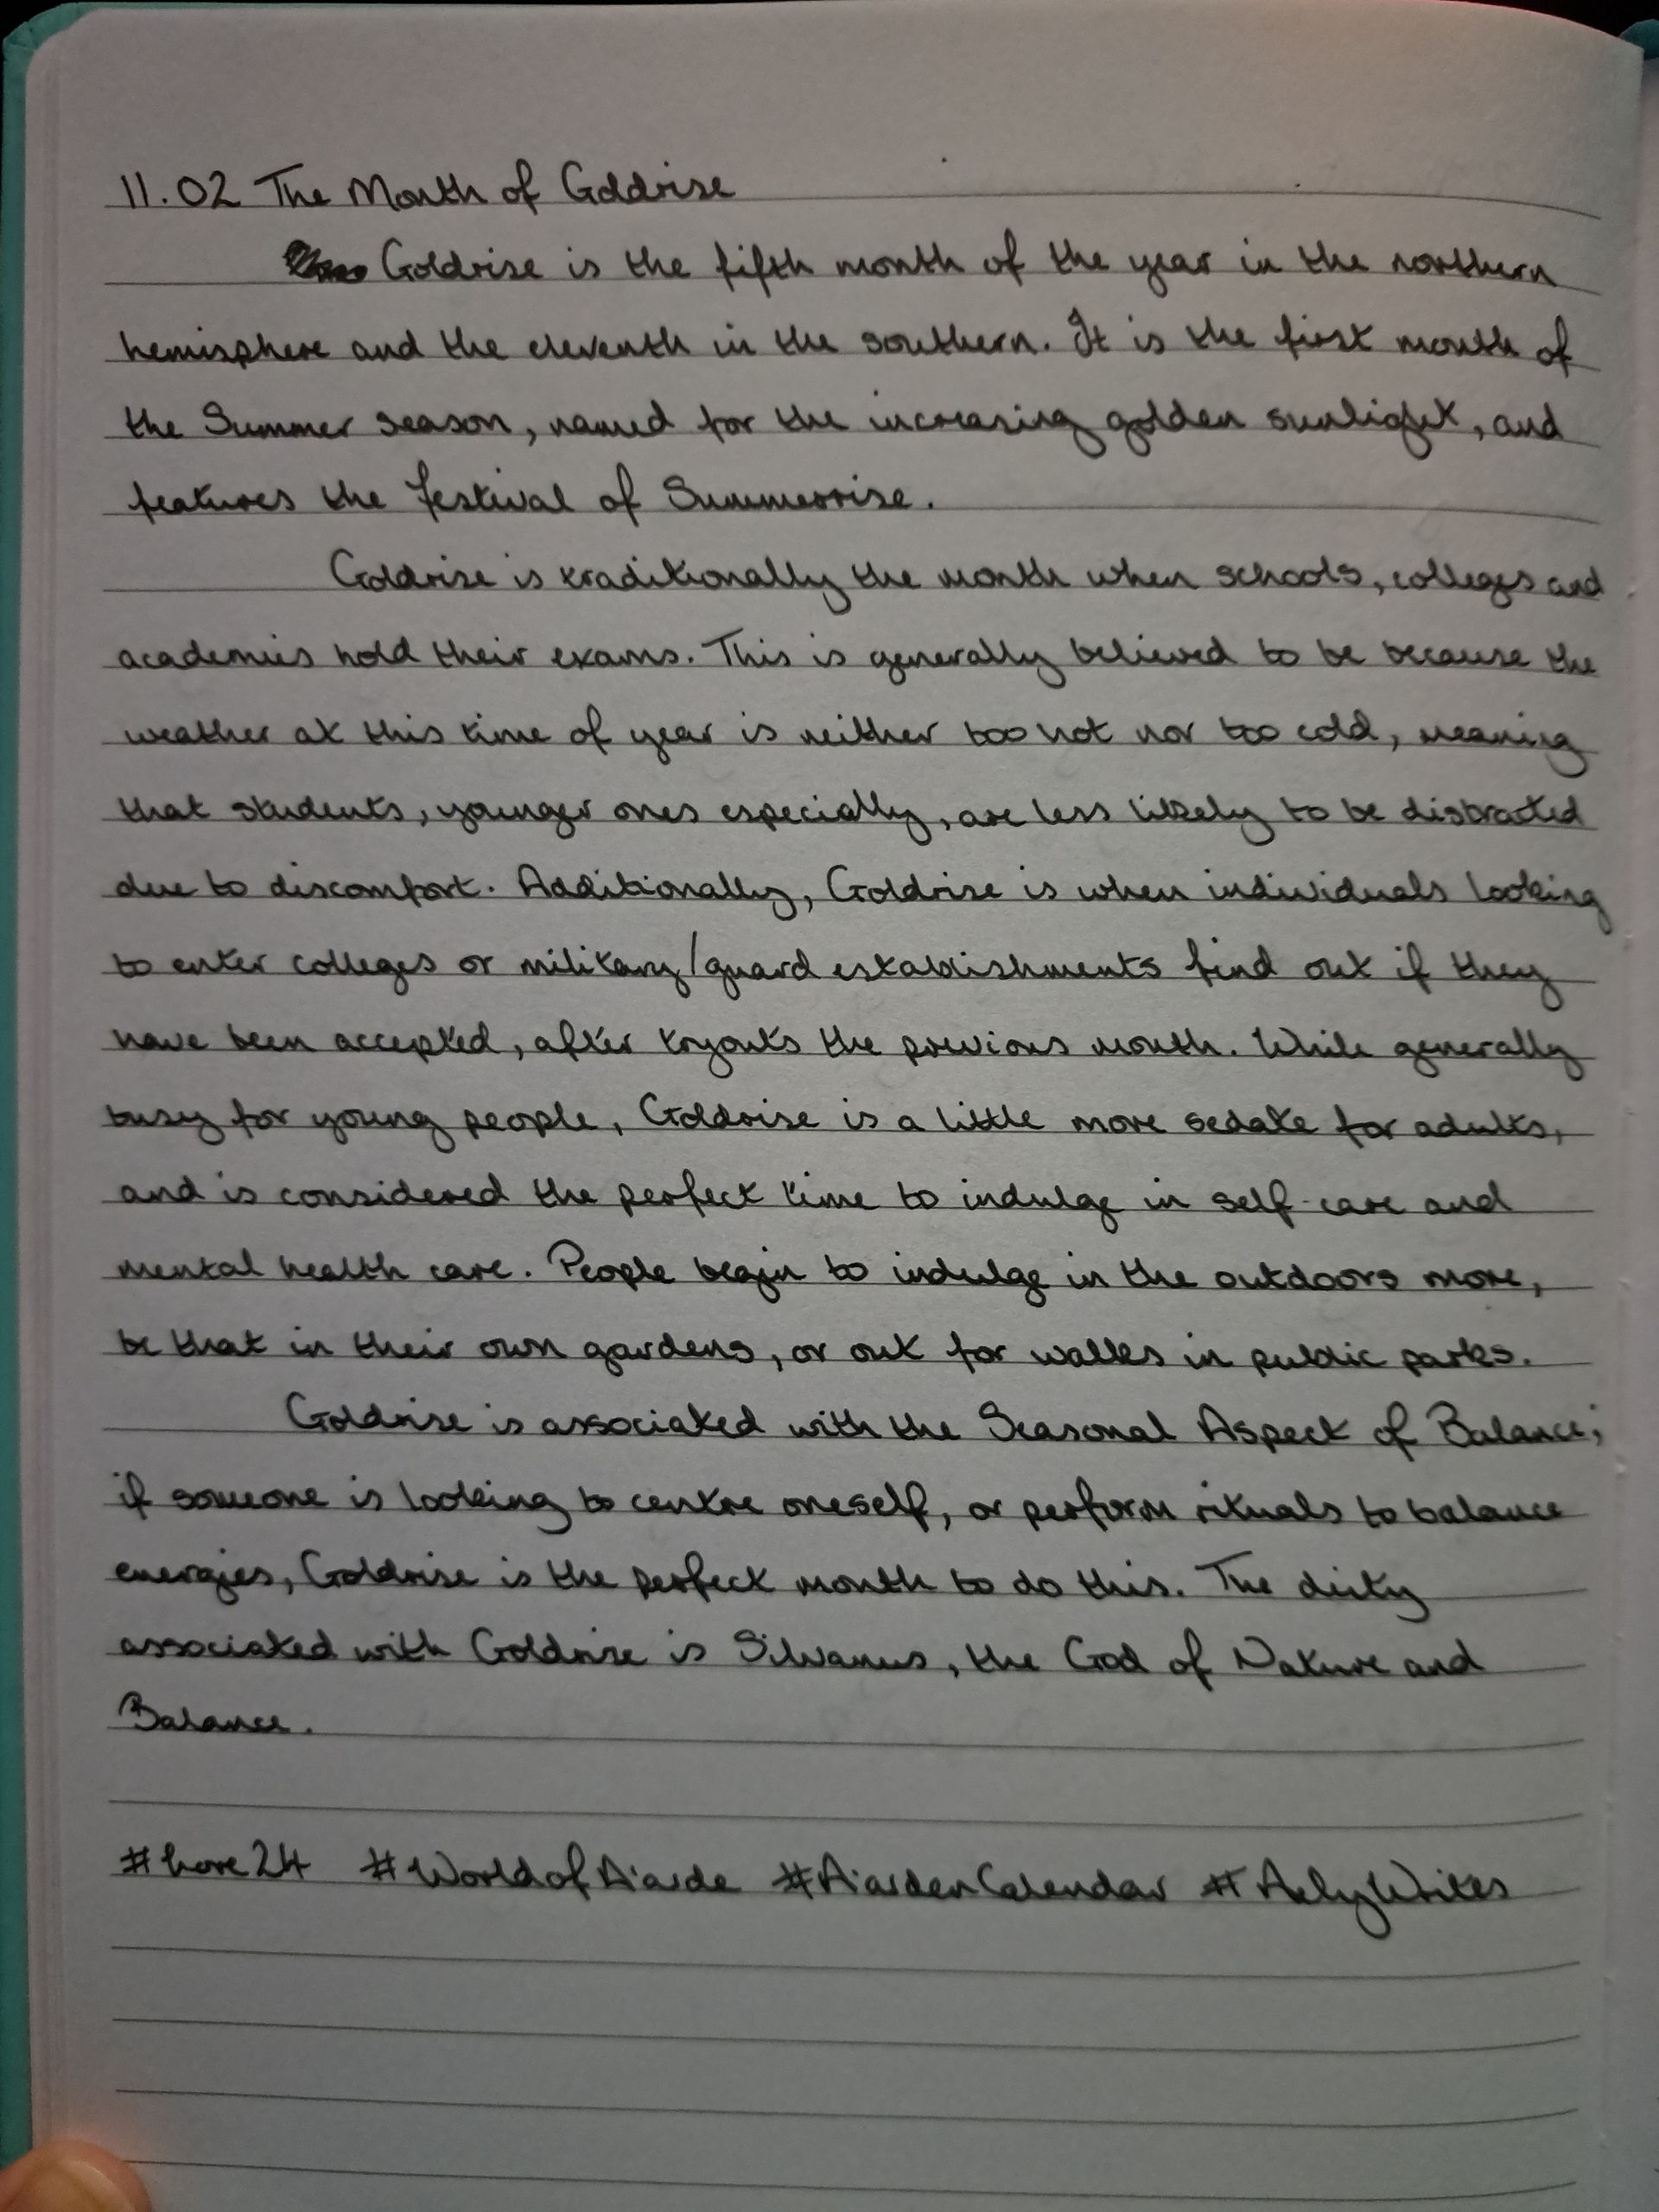 11.02 The Month of Goldrise
Goldrise is the fifth month of the year in the northern
hemisphere and the eleventh in the southern. It is the first month of
the Summer season, named for the increasing golden sunlight, and
features the festival of Summerrise.
Goldrise is traditionally the month when schools, colleges and
academies hold their exams. This is generally believed to be because the
weather at this time of year is neither too hot nor too cold, meaning
that students, younger ones especially, are less likely to be distracted
due to discomfort. Additionally, Goldrise is when individuals looking
to enter colleges or military/guard establishments find out if they
have been accepted, after tryouts the previous month. While generally
busy for young people, Goldrise is a little more sedate for adults,
and is considered the perfect time to indulge in self-care and
mental health care. People begin to indulge in the outdoors more,
be that in their own gardens, or out for walks in public parks.
Goldrise is associated with the Seasonal Aspect of Balance;
if someone is looking to centre oneself, or perform rituals to balance
energies, Goldrise is the perfect month to do this. The deity
associated with Goldrise is Silvanus, the God of Nature and
Balance.
#Lore24 #WorldofAiarde #AiardenCalendar #AelyWrites